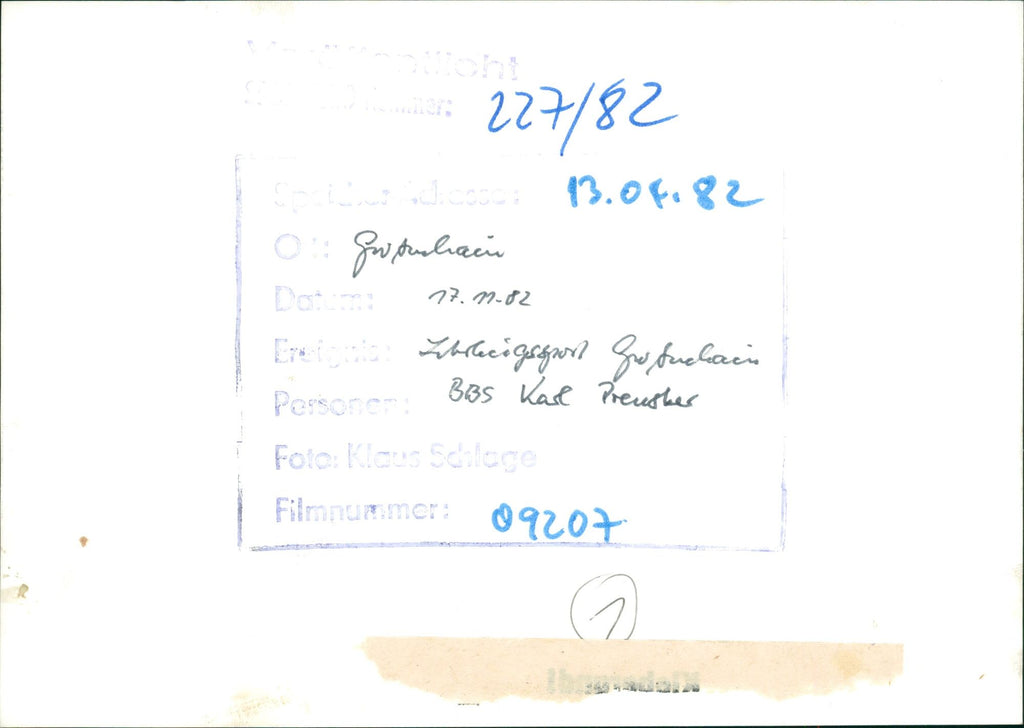 Veröffentlicht
Nummer: 227/82
Speicher-Adresse: 13.04.82
Ort: Großenhain
Datum: 17.11.82
Ereignis: Lehrlingssport Großenhain
Personen: BBS Karl Preusker
Foto: Klaus Schlage
Filmnummer: 09207
1
Kleberand!